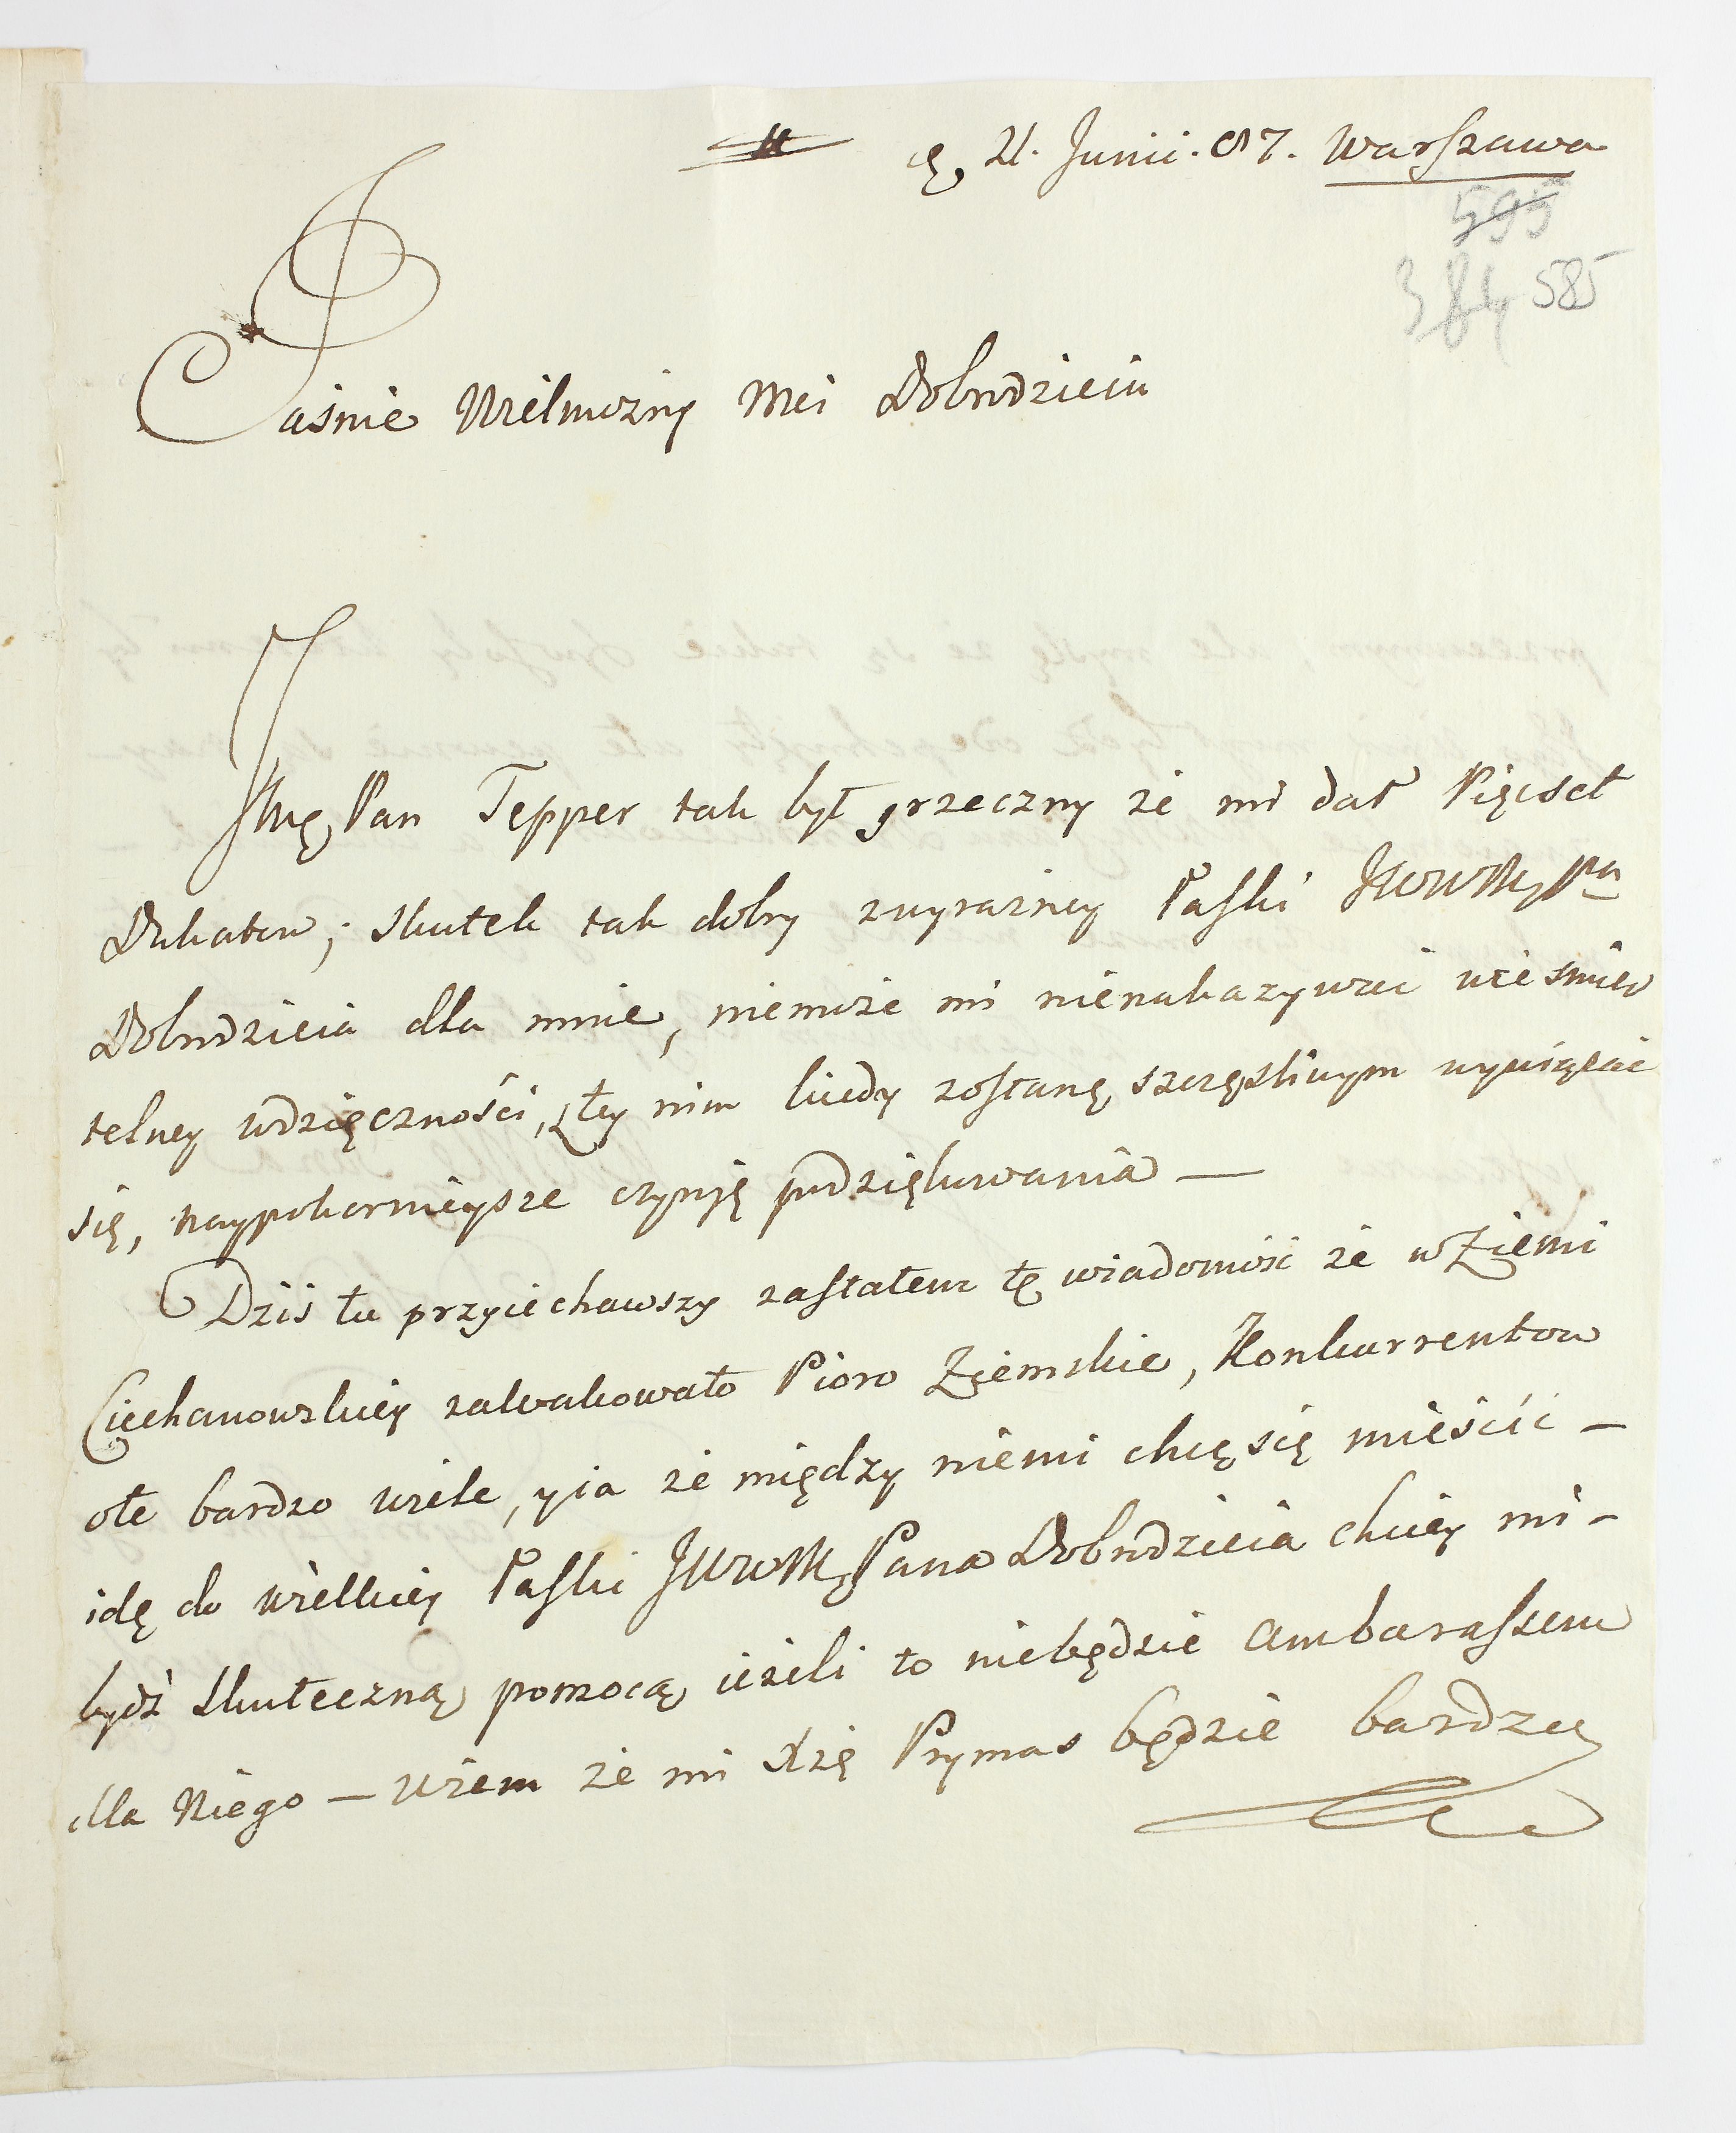 21. Junii. 87. Warszawa
595
384 585
Jaśnie Wielmożny Mci Dobrodzieiu
Jmę Pan Tepper tak był grzeczny że mi dał Pięcset
Dukatow; skutek tak dobry zwyrażney Łaski JWWMę Pa
Dobrodzieia dla mnie, niemoże mi nienakazywać nieśmier
telney wdzięczności, z tey nim kiedy zostanę szczęśliwym wywiązać
się, naypokornieysze czynię podziękowania —
Dziś tu przyiechawszy zastałem tę wiadomość że w Ziemi
Ciechanowskiey zawakowało Pioro Ziemskie, Konkurrentow
ołe bardzo wiele, y ia że między niemi chcę się mieścić —
idę do wielkiey Łaski JWWMę Pana Dobrodzieia chciey mi -
bydź skuteczną pomocą ieżeli to niebędzie ambarassem
dla Niego — wiem że mi Xżę Prymas będzie bardzo